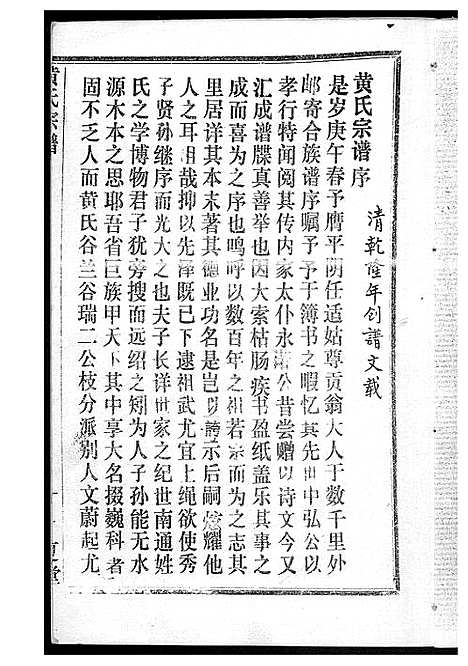 黄氏宗谱序
清乾隆年创谱文载
是岁庚午春予膺平阴任适姑尊贡翁大人于数千里外
邮寄合族谱序嘱予予于簿书之暇忆其先世中弘公以
孝行特闻阅其传内家太仆永公昔尝赠以诗文今又
汇成谱牒真善举也因大索枯肠疾书盈纸盖乐其事之
成而喜为之序也呜呼以数百年之祖若宗而为之志其
里居详其本末著其德业功名是岂以夸示后嗣炫耀他
人之耳目哉抑以先泽既已下逮祖武尤宜上绳欲使秀
子贤孙继序而光大也夫子长详世家之纪世南通姓
氏之学博物君子犹旁搜而远绍之矧为人子孙能无水
源木本之思耶吾省巨族甲天下其中享大名掇巍科者
固不乏人而黄氏谷兰谷瑞二公枝分派别人文蔚起尤
黄氏宗谱